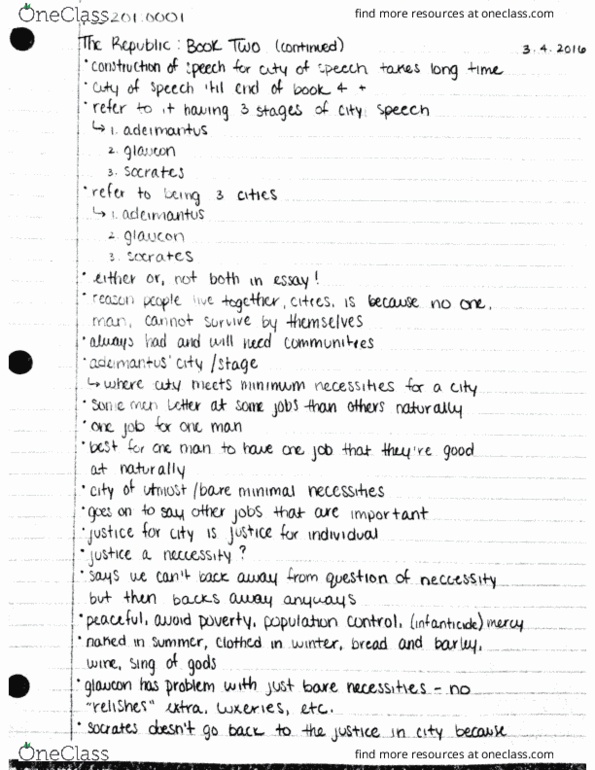 OneClass
201.0001
find more resources at oneclass.com
The Republic : Book Two (continued)
3.4.2016
• construction of speech for city of speech takes long time
• city of speech 'til end of book 4 +
• refer to it having 3 stages of city speech
↳ 1. adeimantus
2. glaucon
3. socrates
• refer to being 3 cities
↳ 1. adeimantus
2. glaucon
3. socrates
• either or, not both in essay!
• reason people live together, cities, is because no one,
man, cannot survive by themselves
• always had and will need communities
• adeimantus' city / stage
↳ where city meets minimum necessities for a city
• some men better at some jobs than others naturally
• one job for one man
• best for one man to have one job that they're good
at naturally
• city of utmost / bare minimal necessities
• goes on to say other jobs that are important
• justice for city is justice for individual
• justice a neccessity?
• says we can't back away from question of neccessity
but then backs away anyways
• peaceful, avoid poverty, population control, (infanticide) mercy
• naked in summer, clothed in winter, bread and barley,
wine, sing of gods
• glaucon has problem with just bare necessities - no
"relishes" extra, luxeries, etc.
• socrates doesn't go back to the justice in city because
OneClass
find more resources at oneclass.com